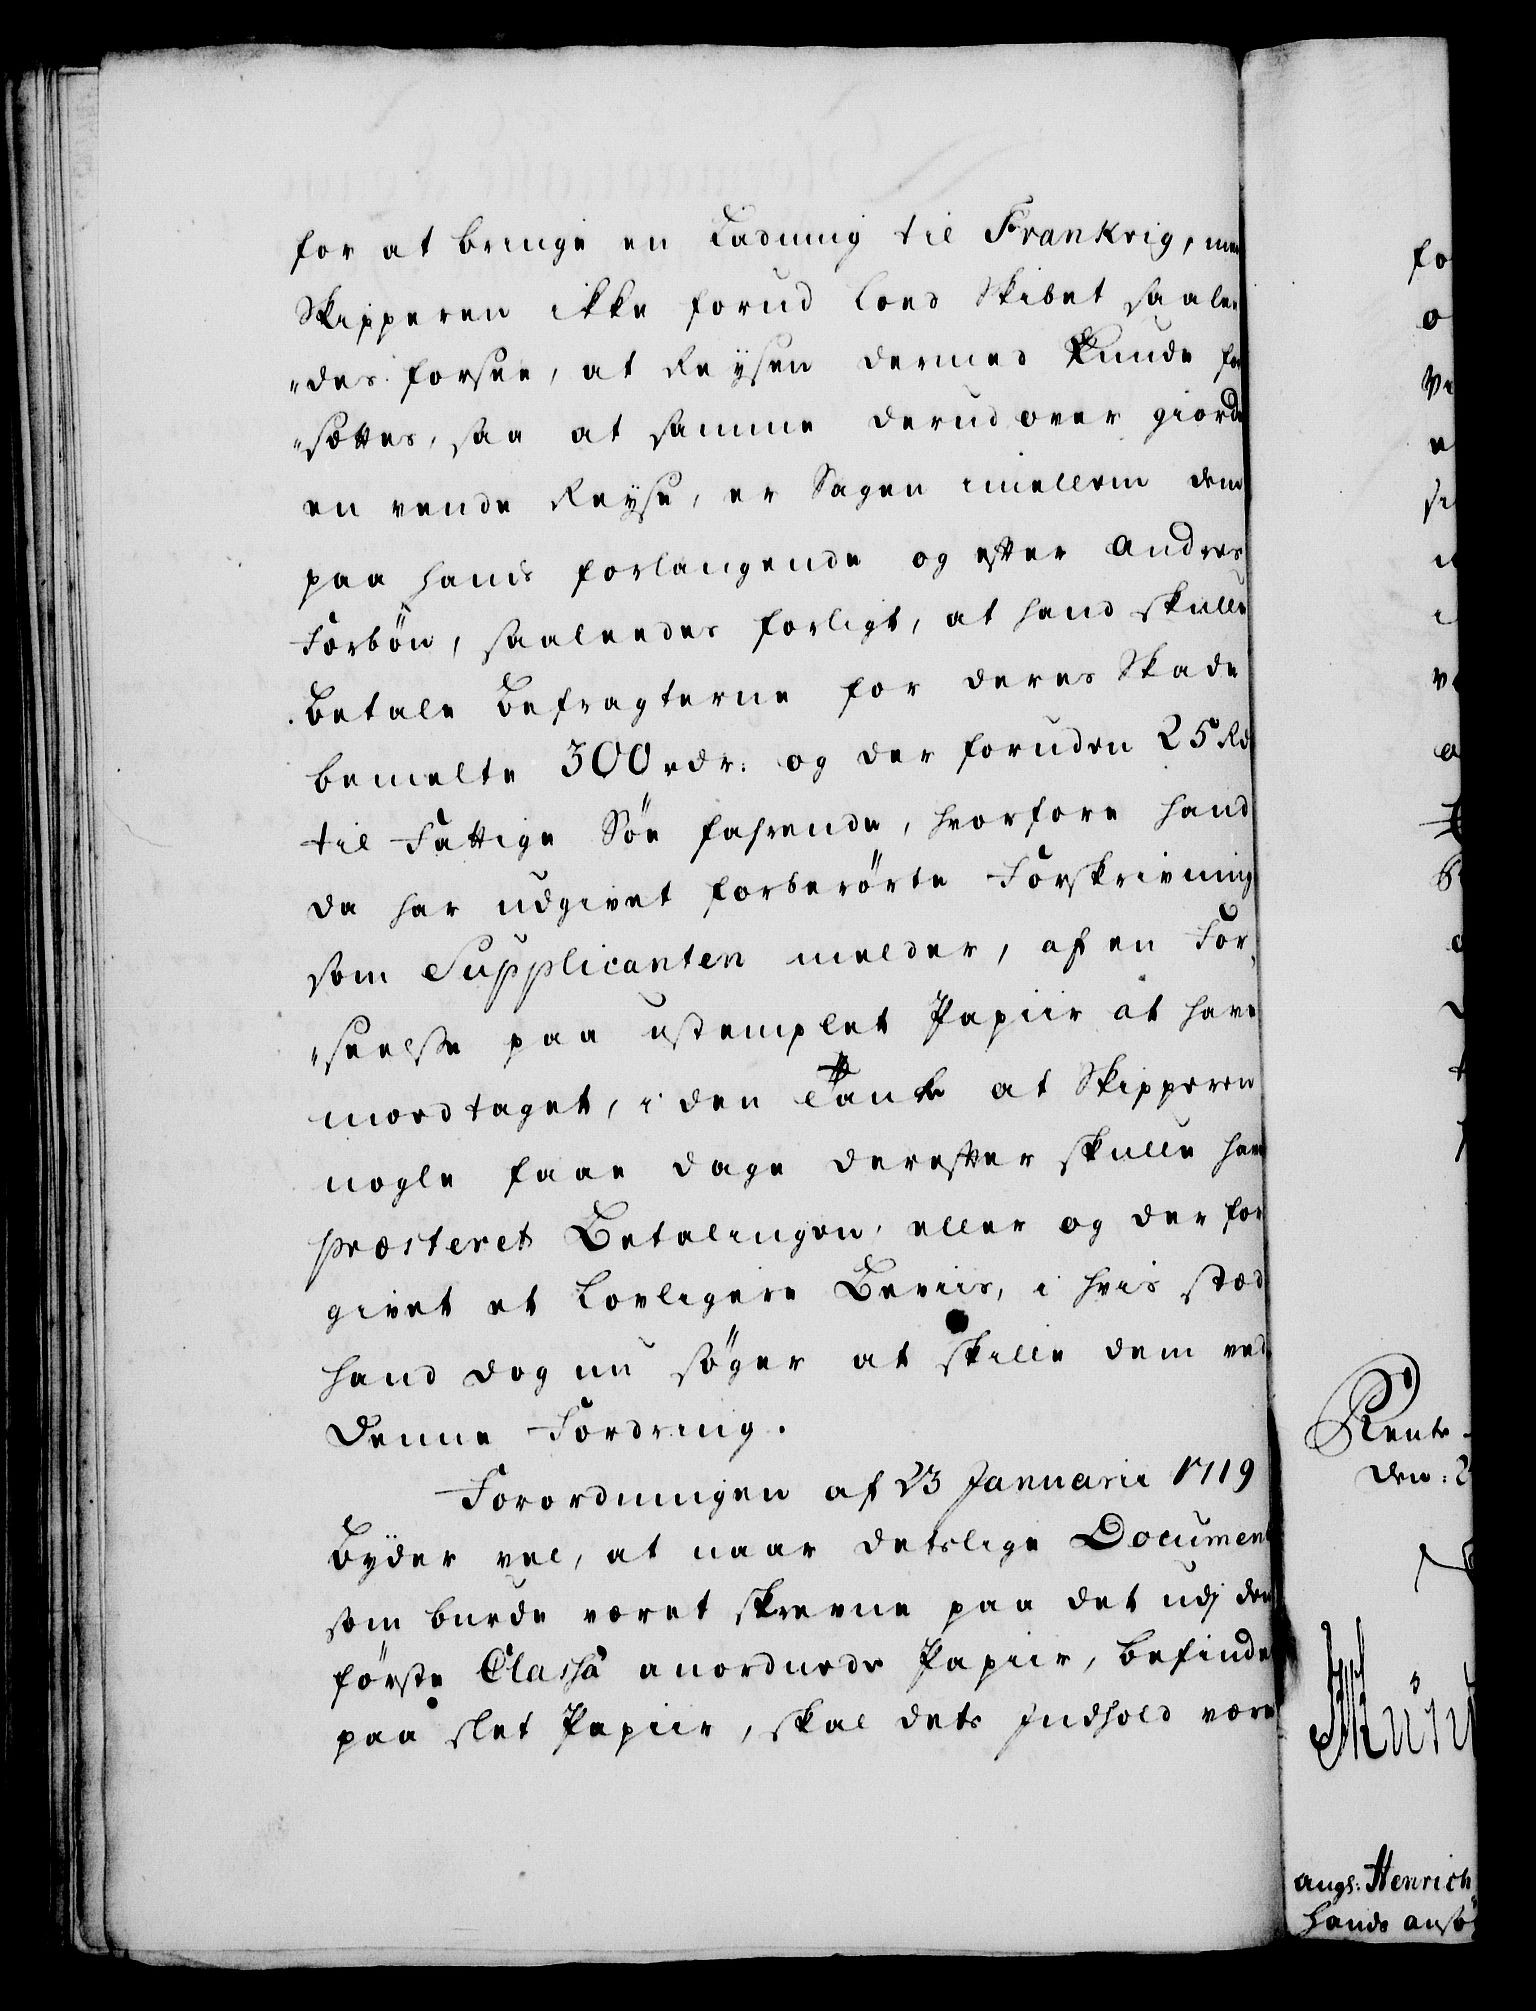 for at bringe en Ladning til Frankrig, men
Skipperen ikke forud loed Skibet saalee
"des forsee, at Reysen dermed kunde for
"sættes, saa at samme derudover giorde
en vende Reyse, er Sagen imellem dem
paa hans forlangende og efter andres
Forbön, saaleedes forligt, at hand skulle
betale Befragterne for deres Skade
bemelte 300 rdr: og der foruden 25 Rd
til Fattige Söe farende, hvorfore hand
da har udgivet forberörte Forskrivning
som Supplicanten melder, af en For¬
"seelse paa ustemplet Papiir at have
modtaget, i den Tanke at Skipperen
nogle faae dage derefter skulle have
præsteret Betalingen, eller og der for
givet et Lovligere Beviis, i hvis stæd
hand dog nu söger at skille dem ved
denne Fordring.
Forordningen af 23 Januarii 1719
byder vel, at naar detslige Document
som burde været skrevne paa det udj den
förste Classe anordnede Papiir, befindes
paa slet Papiir, skal dets Indhold være
fo
o
ve
Rente
den: 2
Münt
angs: Henrich
hands ansö